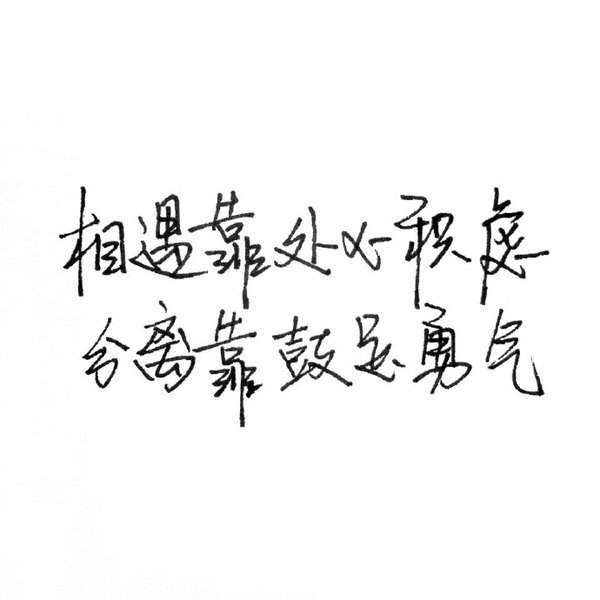 相遇靠处心积虑
分离靠鼓足勇气